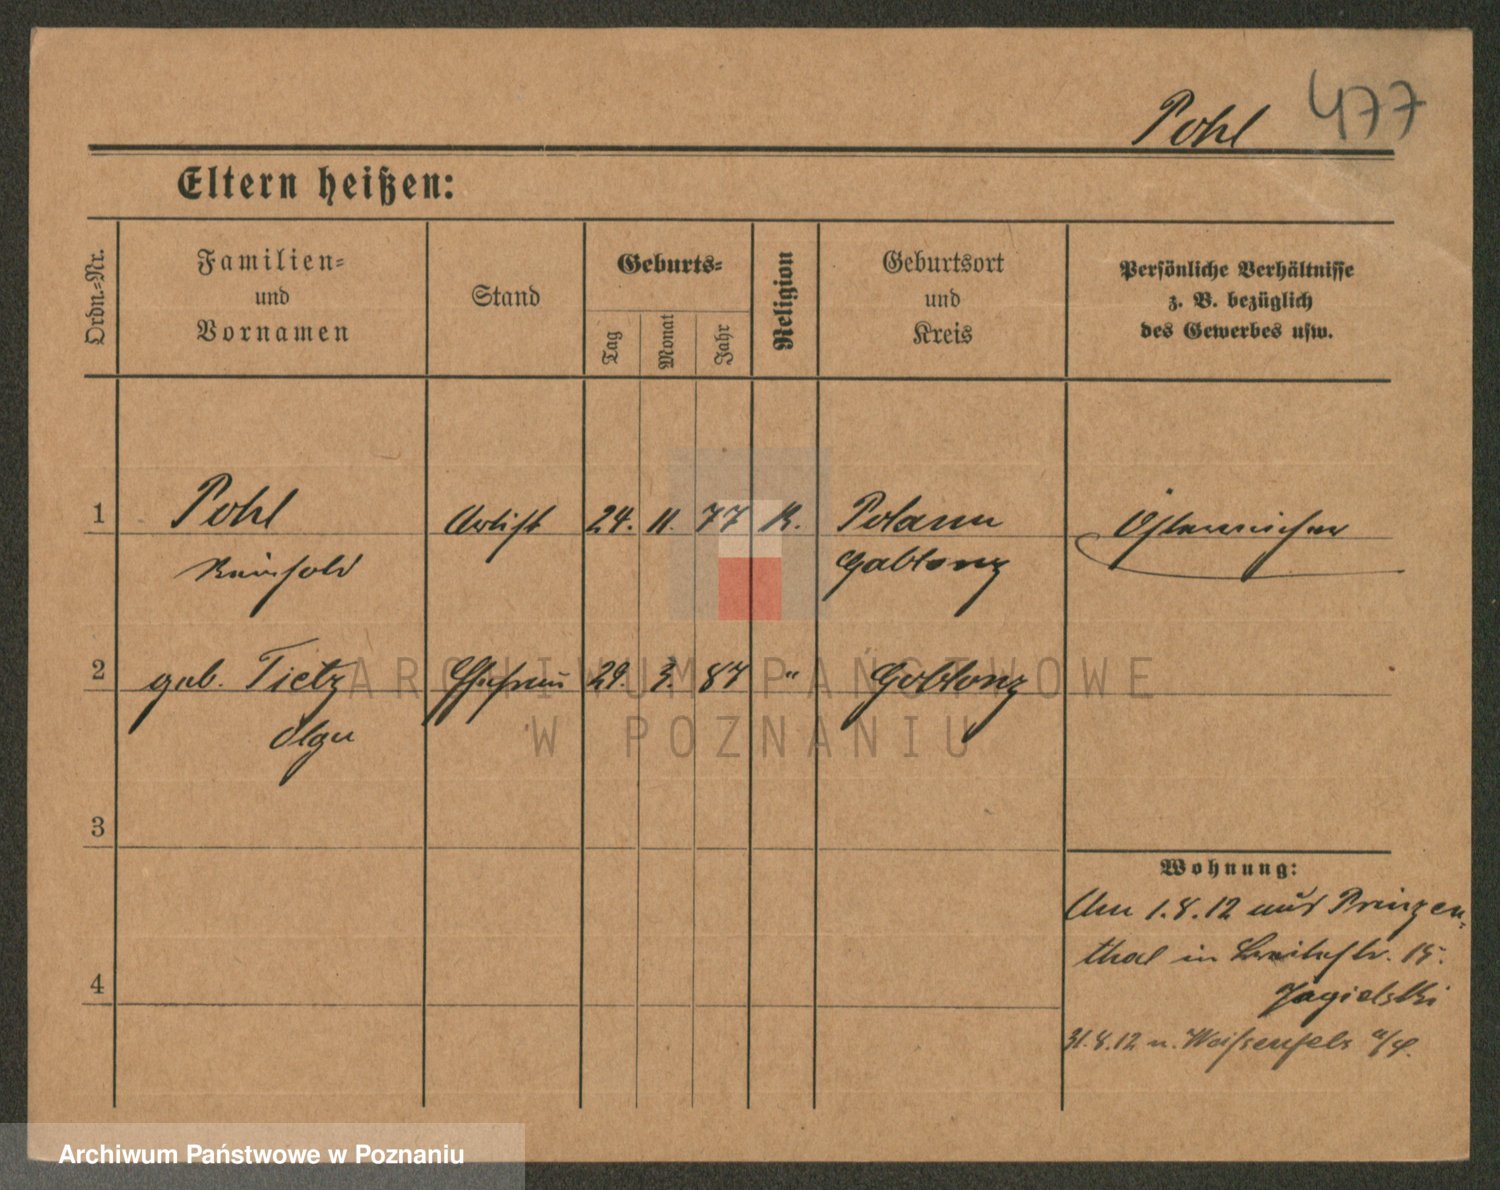 Pohl 477
Eltern heißen:
Ordn.-Nr.
Familien-
und
Vornamen
Stand
Geburts-
Tag
Monat
Jahr
Religion
Geburtsort
und
Kreis
Persönliche Verhältnisse
z. B. bezüglich
des Gewerbes usw.
1 Pohl Artist 24. 11. 77 K. Polaun Österreicher
Reinhold Gablonz
2 geb. Tietz Ehefrau 29. 3. 87 " Gablonz
Olga
3
4
Wohnung:
Am 1.8.12 aus Prinzen-
thal in Breitestr. 15.
Jagielski
31.8.12 n. Weißenfels a/S.
ARCHIWUM PAŃSTWOWE
W POZNANIU
Archiwum Państwowe w Poznaniu